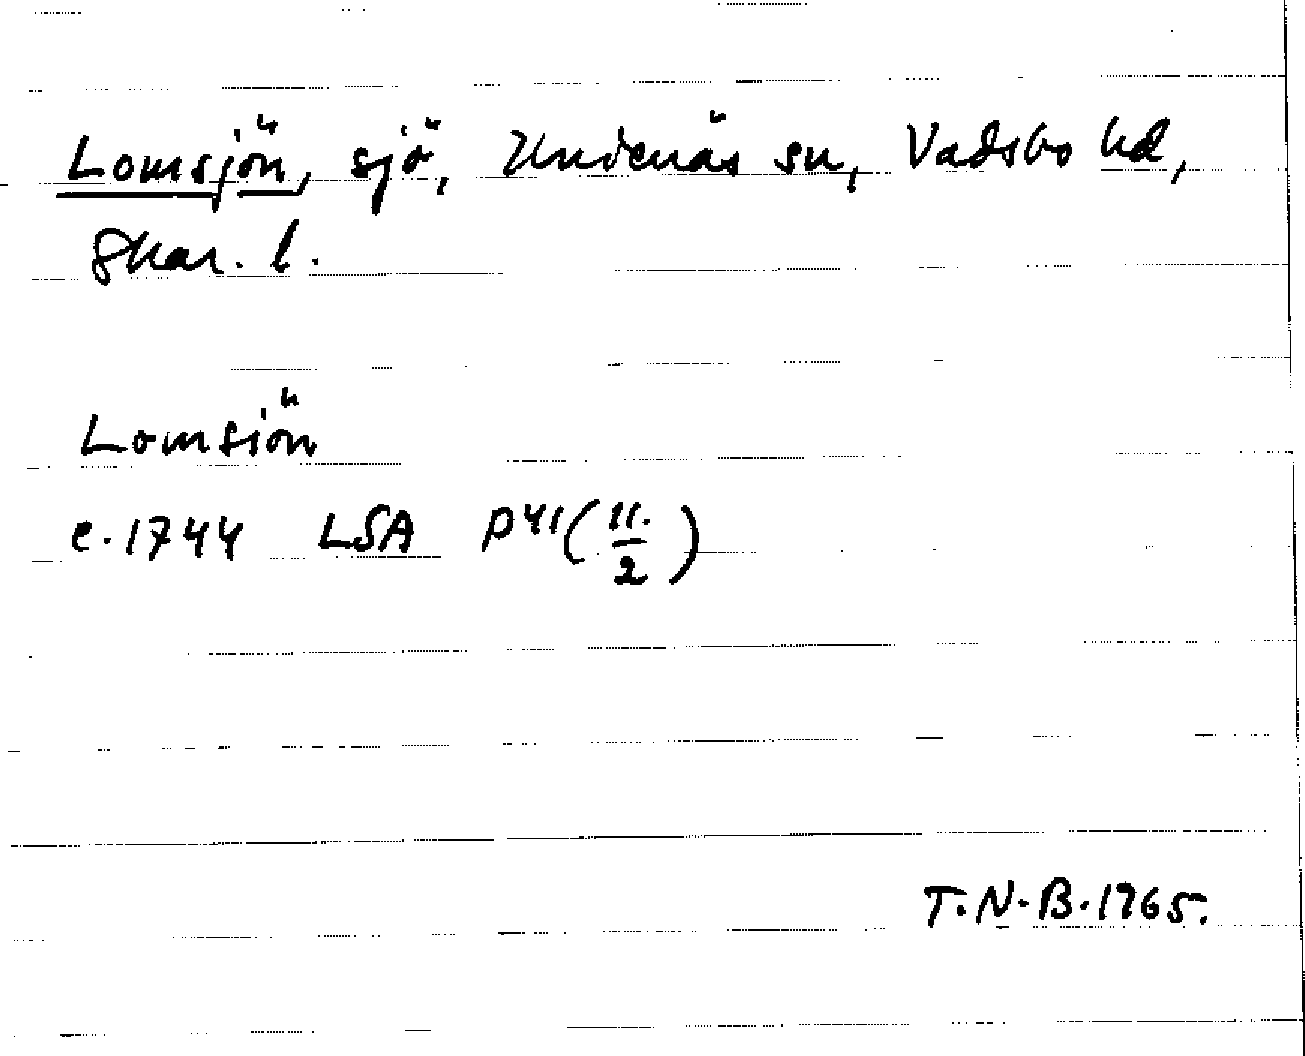 Lomsjön, sjö, Undenäs sn, Vadsbo hd,
Skar. l.
Lomsiön
c.1744 LSA P41(11/2)
T.N.B.1965.